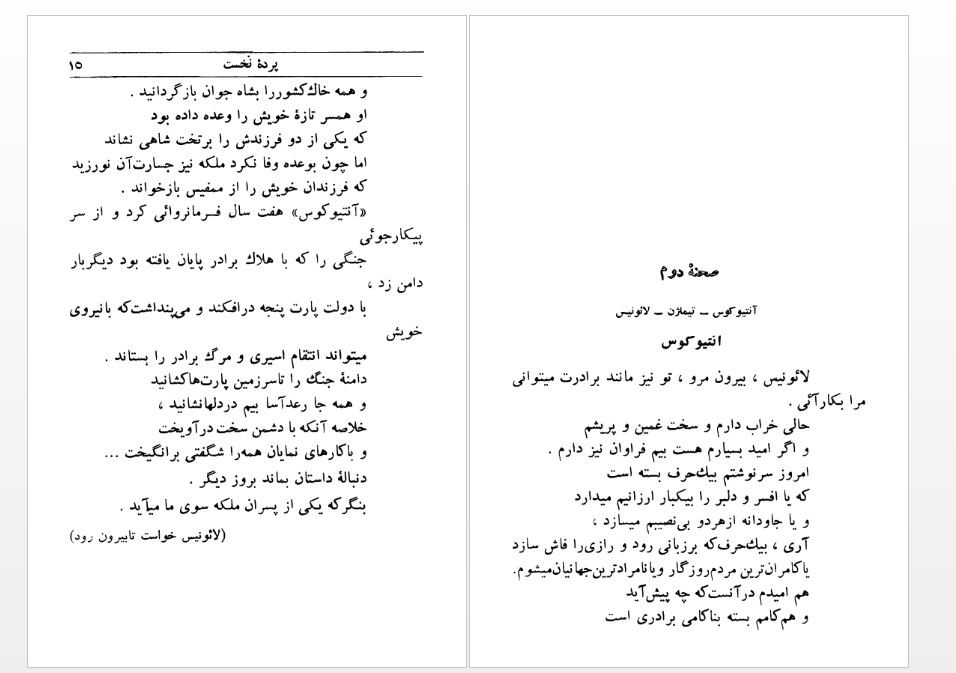 پردهٔ نخست
۱۵
و همه خاك كشوررا بشاه جوان بازگردانید .
او همسر تازهٔ خویش را وعده داده بود
که یکی از دو فرزندش را برتخت شاهی نشاند
اما چون بوعده وفا نکرد ملکه نیز جسارت‌آن نورزید
که فرزندان خویش را از ممفیس بازخواند .
«آنتیوکوس» هفت سال فرمانروائی کرد و از سر
پیکارجوئی
جنگی را که با هلاك برادر پایان یافته بود دیگربار
دامن زد ،
با دولت پارت پنجه درافکند و می‌پنداشت‌که بانیروی
خویش
میتواند انتقام اسیری و مرگ برادر را بستاند .
دامنهٔ جنگ را تاسرزمین پارت‌هاکشانید
و همه جا رعدآسا بیم دردلهانشانید ،
خلاصه آنکه با دشمن سخت درآویخت
و باکارهای نمایان همه‌را شگفتی برانگیخت ...
دنبالهٔ داستان بماند بروز دیگر .
بنگرکه یکی از پسران ملکه سوی ما میآید .
(لائونیس خواست تابیرون رود)
صحنهٔ دوم
آنتیوکوس ــ تیماژن ــ لائونیس
انتیوکوس
لائونیس ، بیرون مرو ، تو نیز مانند برادرت میتوانی
مرا بکارآئی .
حالی خراب دارم و سخت غمین و پریشم
و اگر امید بسیارم هست بیم فراوان نیز دارم .
امروز سرنوشتم بیك‌حرف بسته است
که یا افسر و دلبر را بیکبار ارزانیم میدارد
و یا جاودانه ازهردو بی‌نصیبم میسازد ،
آری ، بیك‌حرف‌که برزبانی رود و رازی‌را فاش سازد
یاکامران‌ترین مردم‌روزگار ویانامرادترین‌جهانیان‌میشوم.
هم امیدم درآنست‌که چه پیش‌آید
و هم‌کامم بسته بناکامی برادری است